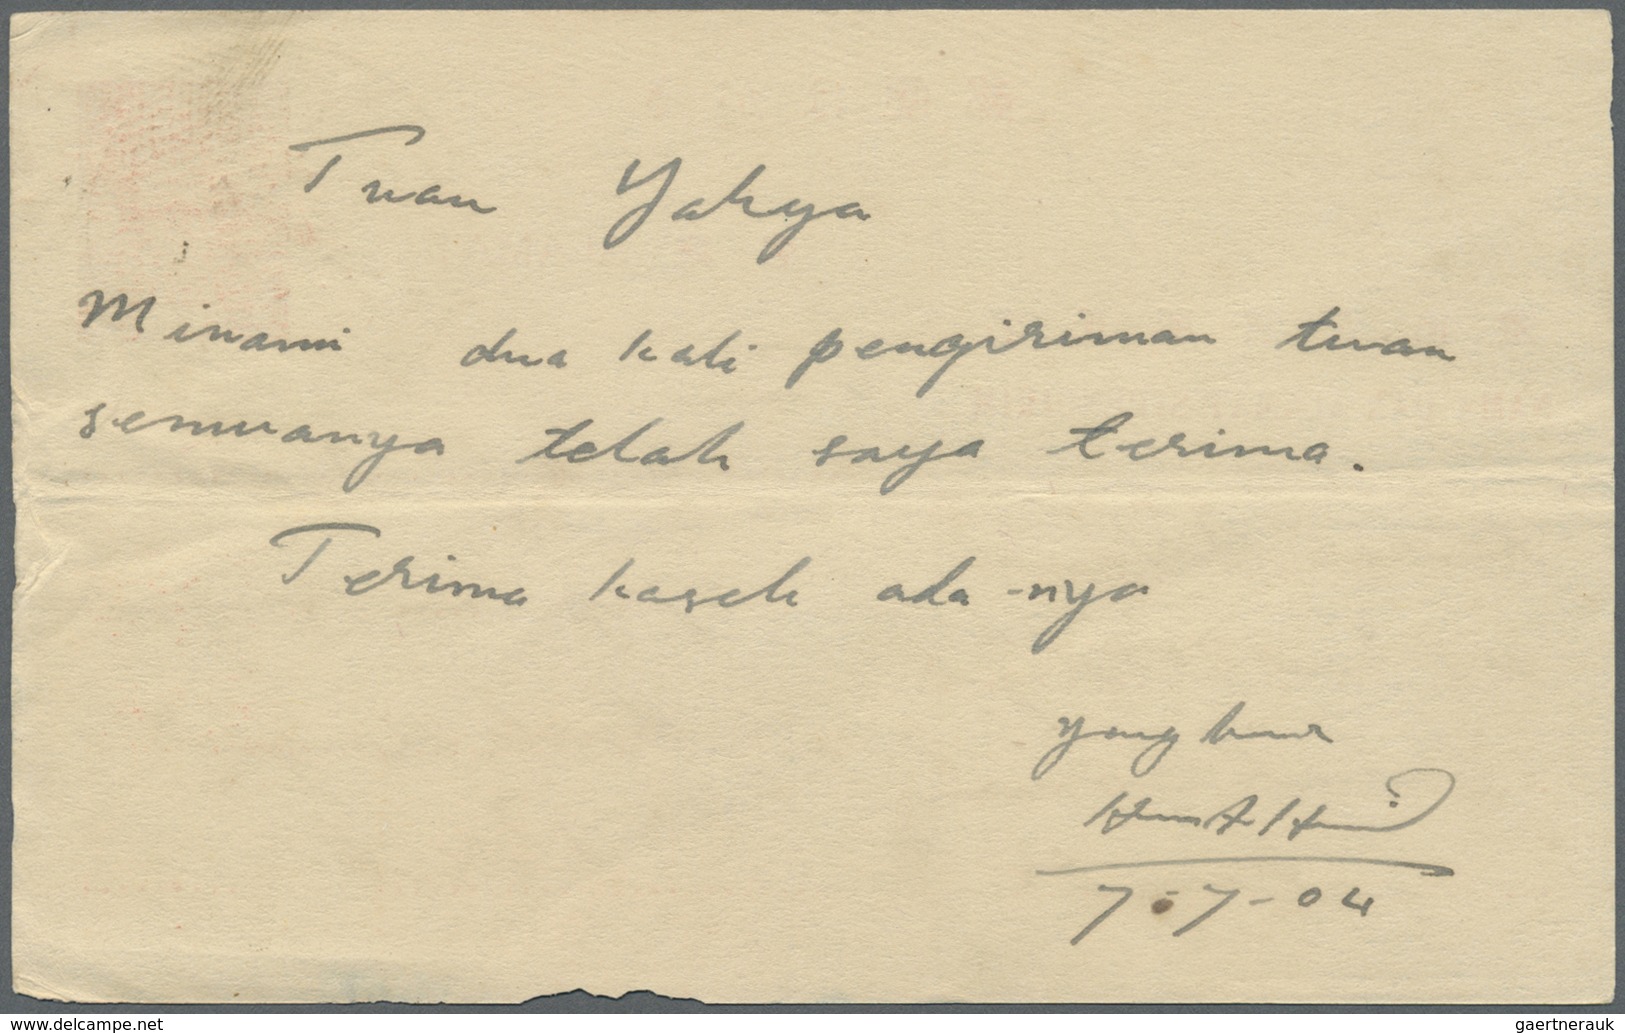 Tuan Yahya
Minami dua kali pengiriman tuan
semuanya telah saya terima.
Terima kaseh ada-nya
yang
7-7-04
www.delcampe.net
gaertnerauk